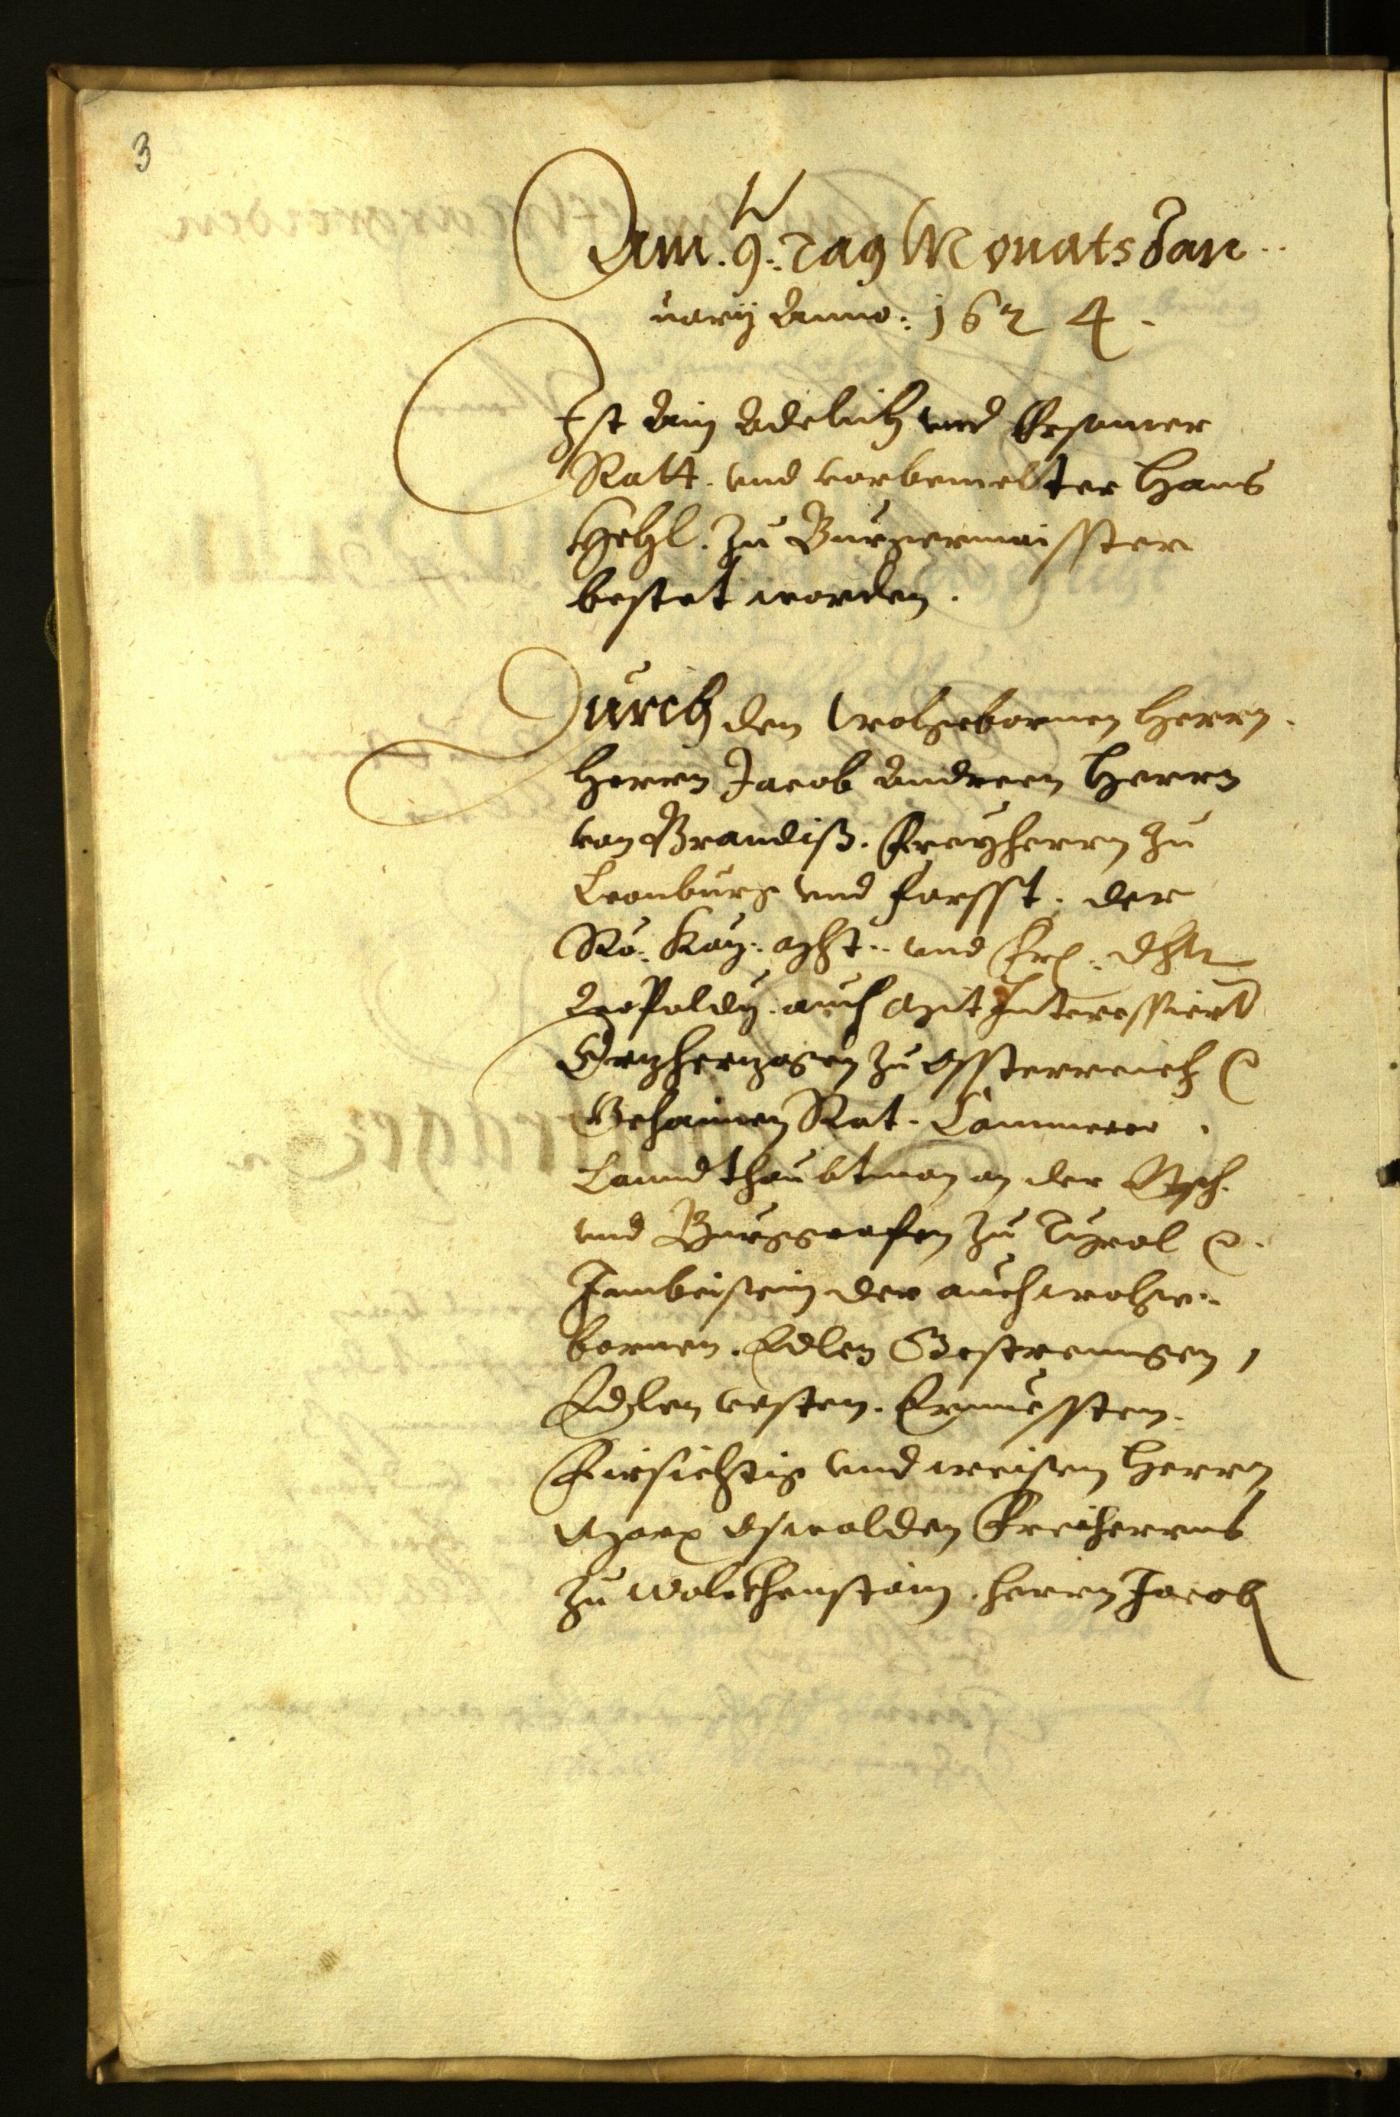 3
Am. 9. Tag Monats Jan
uarÿ Anno: 1624.
Ist Ain Adelich vnd Ersamer
Ratt. vnd vorbemelter Hans
Hehl. Zu Burgermaisster
bestet worden.
Durch den Wolgebornen Herrn.
Herrn Jacob Andreen Herrn
von Brandiß. Freyherrn zu
Leonburg vnd Forsst. der
Rö: Kay: Mst: vnd Frl: Dhlt
Leopoldy. auch Mit Interessiert
Ertzhertzogen zu Össterreich &
Gehaimen Rat. Cammerer.
Lanndthaubtman an der Etsch.
vnd Burggrafen zu Tyrol &.
Jm beisein der auch wolge-
bornen. Edlen Gestrenngen,
Edlen vesten. Ernuessten.
Fürsichtig vnd weisen Herrn
Marx Oswalden Freiherrns
zu Wolckhenstain. Herrn Jacob